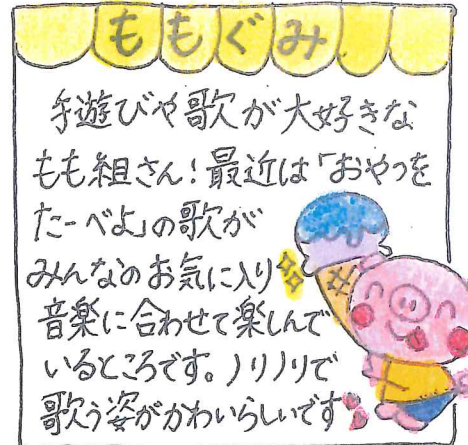 ももぐみ
手遊びや歌が大好きな
もも組さん!最近は「おやつを
たーべよ」の歌が
みんなのお気に入り
音楽に合わせて楽しんで
いるところです。ノリノリで
歌う姿がかわいらしいです